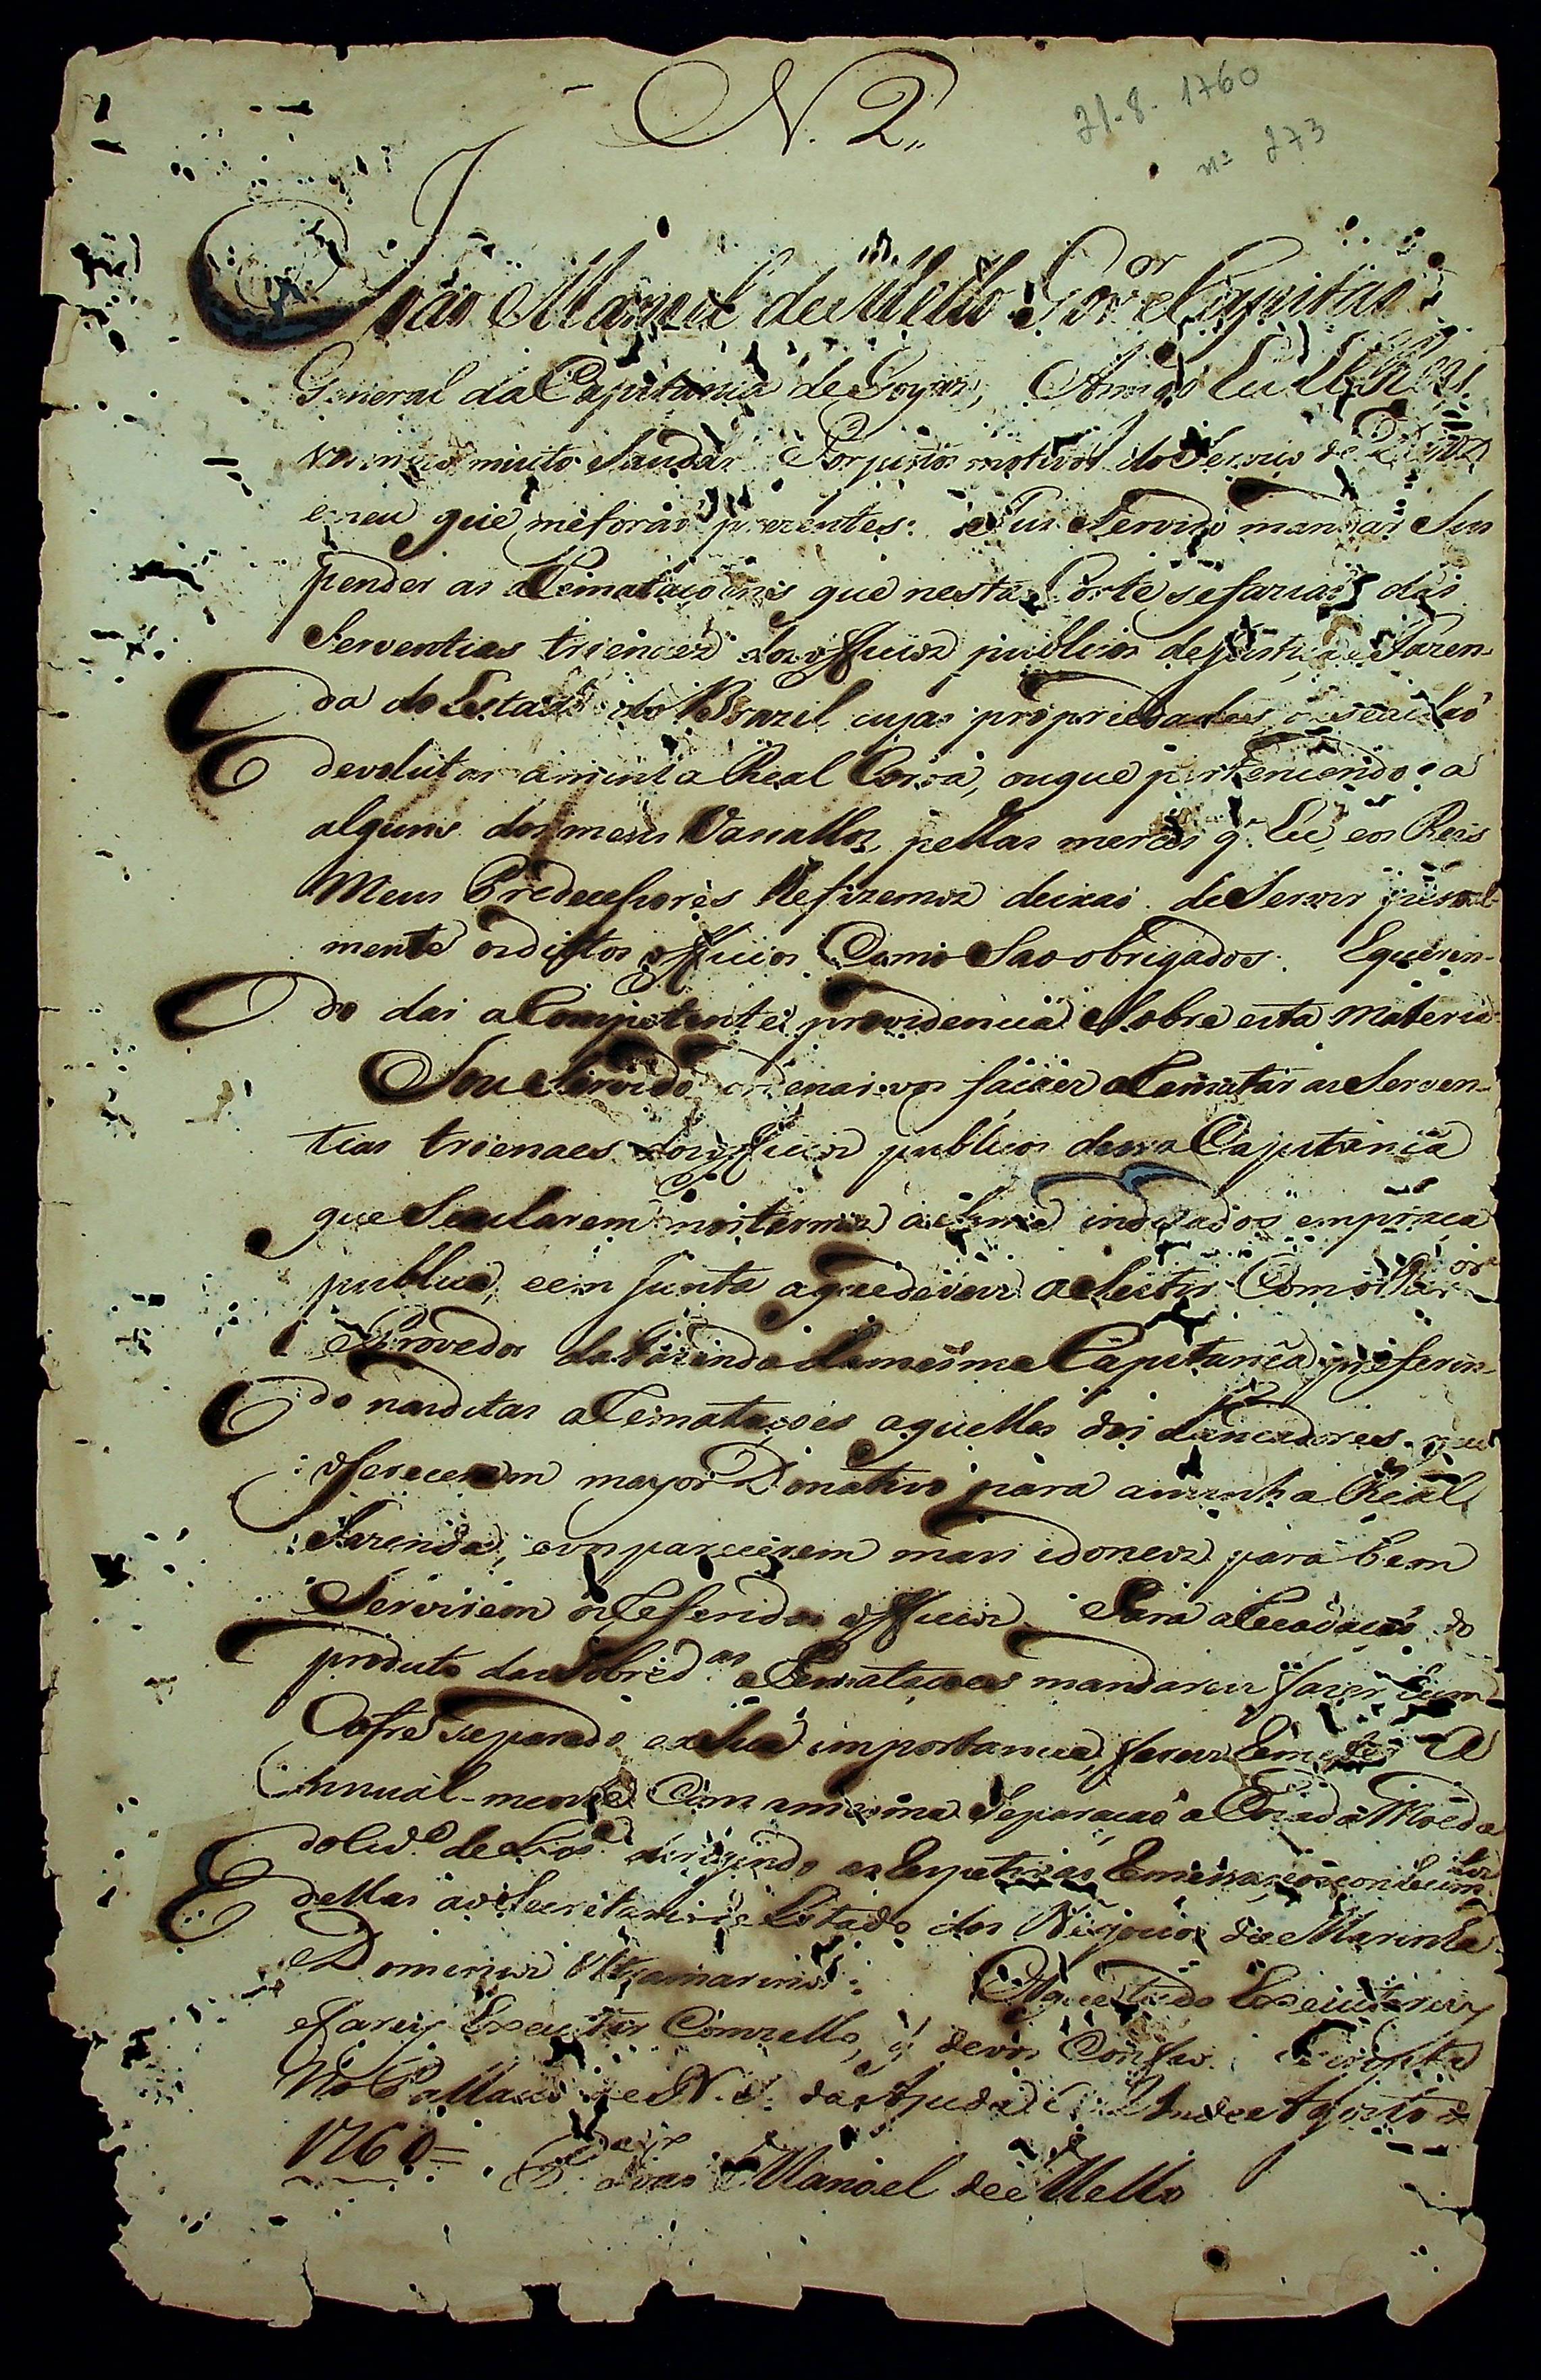 N. 2,,
21-8-1760
nº 273
João Manoel de Mello Gov.or e Capitão
General da Capitania de Goyaz, Amigo Eu El Rey
vos muito Saudar Por justos motivos do Serviço de Deos
e meu que me forão prezentes: Fui Servido mandar Sus
pender as aRematacoens que nesta Corte se farião das
Serventias trienaes dos officios publicos de Justiça e Fazen-
da do Estado do Brazil cujas propriedades ou se achão
devolutas a minha Real Coroa, ou que pertencendo a
alguns dos meus Vassallos, pellas merces q. Eu, e os Reis
Meus Predecessores lhe fizemos deixão de Servir pesoal-
mente os dittos officios Como São obrigados. E queren-
do dar a Competente providencia Sobre esta materia
Sou Servido ordenar-vos façaes aRematar as Serven-
tias trienaes dos officios publicos dessa Capitania
que Se acharem nos termos asima indicados em praça
publica, e em Junta a que deveis asistir Com o
Provedor da Fazenda da mesma Capitania, preferin-
do nas ditas aRemataçoes aquelles dos Lançadores que
oferecerem mayor Donativo para a minha Real
Fazenda, e vos parecerem mais idoneos para bem
Servirem os Referidos officios. Para aRecadação do
produto das Sobred.as aRematacoes mandareis fazer hum
Cofre separado e a Sua importancia, fareis Remeter A
nnual-mente Com a mesma Separacão a Caza da Moeda
da Cid.e de Lx.a dirigindo as Respetivas Remessas e os conhecim.tos
dellas ao Secretario de Estado dos Negocios da Marinha
e Dominios Ultramarinos. O que tudo Executareis
e fareis Executar Com zello, q. de vos Confio. Escripta
No Pallacio de N. S. da Ajuda a 21 de Agosto de
1760 = Rey
P. João Manoel de Mello